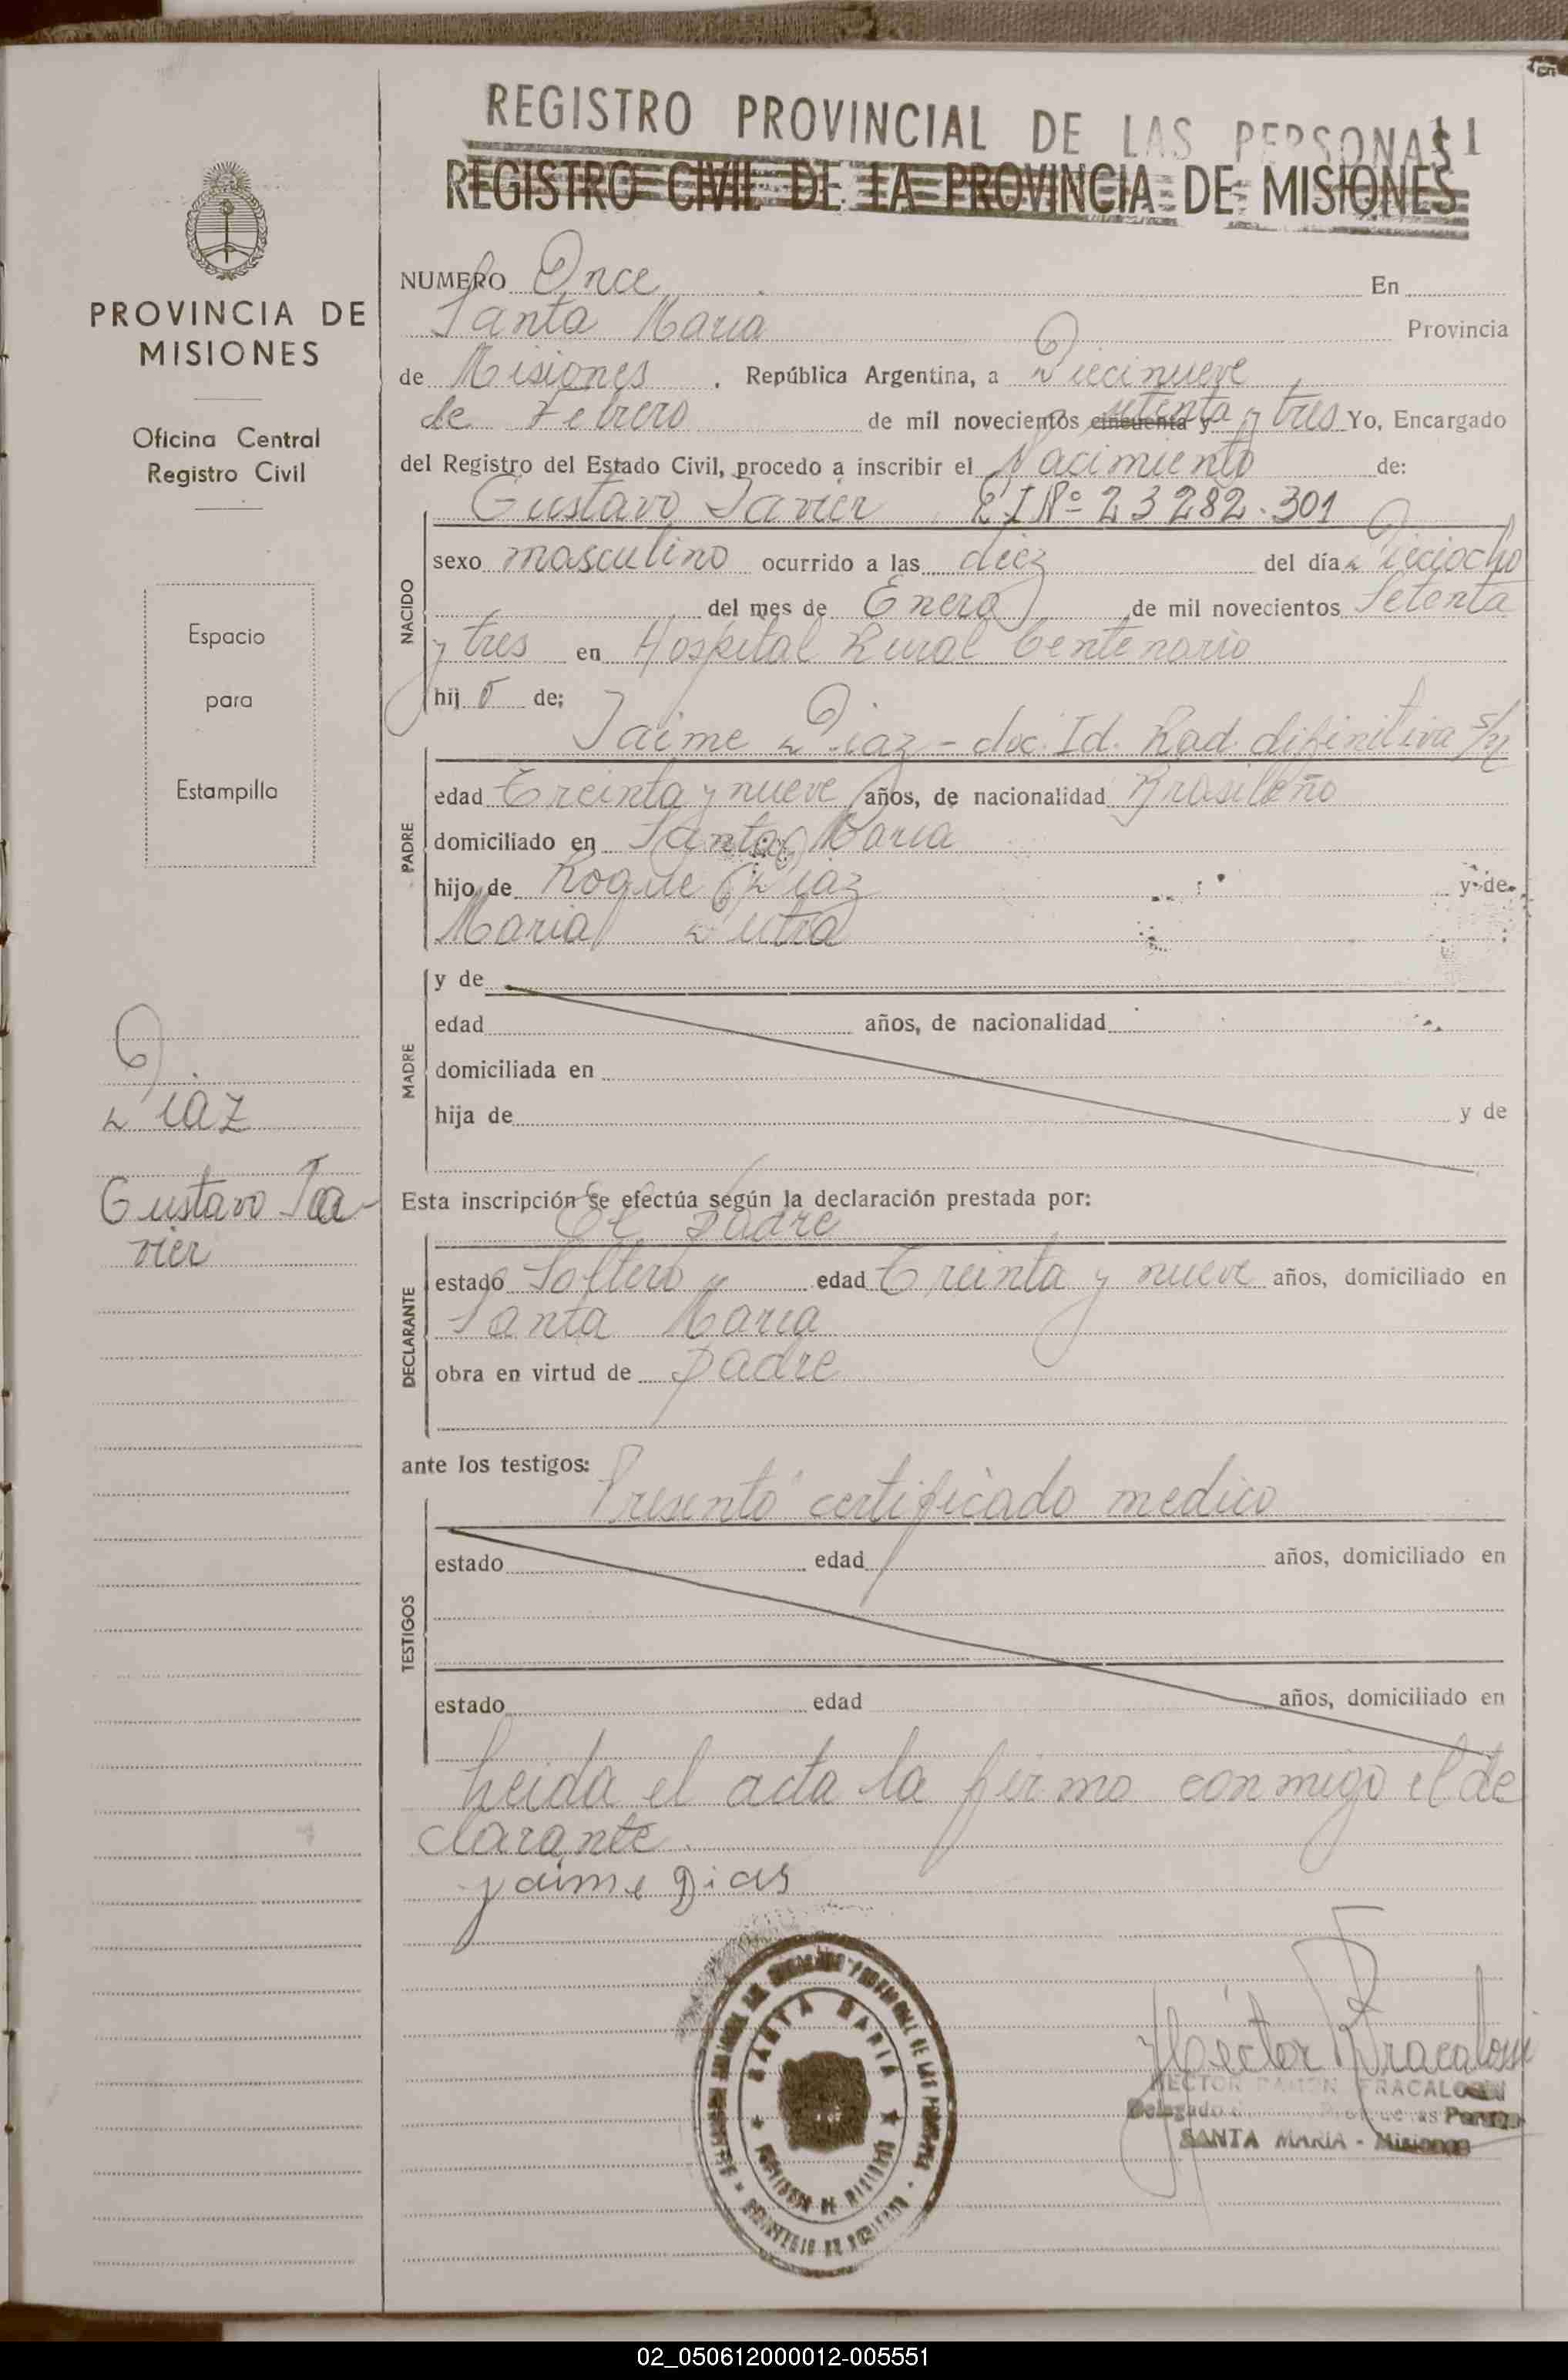 REGISTRO PROVINCIAL DE LAS PERSONAS 11
REGISTRO CIVIL DE LA PROVINCIA DE MISIONES
PROVINCIA DE
MISIONES
Oficina Central
Registro Civil
Espacio
para
Estampilla
Diaz
Gustavo Ja-
vier
NUMERO Once En
Santa Maria Provincia
de Misiones . República Argentina, a Diecinueve
de Febrero de mil novecientos cincuenta y setenta y tres Yo, Encargado
del Registro del Estado Civil, procedo a inscribir el Nacimiento de:
Gustavo Javier Nº 23282.301
NACIDO
sexo masculino ocurrido a las diez del día Dieciocho
del mes de Enero de mil novecientos Setenta
y tres en Hospital Rural Centenario
hij o de;
PADRE
Jaime Diaz - doc. Id. Rad. difinitiva
edad Treinta y nueve años, de nacionalidad Brasileño
domiciliado en Santa Maria
hijo de Roque Diaz y de
Maria Dutra
MADRE
y de
edad años, de nacionalidad
domiciliada en
hija de y de
Esta inscripción se efectúa según la declaración prestada por:
El padre
DECLARANTE
estado Soltero edad Treinta y nueve años, domiciliado en
Santa Maria
obra en virtud de padre
ante los testigos:
Presentó certificado medico
TESTIGOS
estado edad años, domiciliado en
estado edad años, domiciliado en
Leida el acta la firma conmigo el de
clarante
jaime Dias
SANTA MARIA
Héctor Fracalossi
HECTOR RAMON FRACALOSSI
Delegado
SANTA MARIA - Misiones
02_050612000012-005551